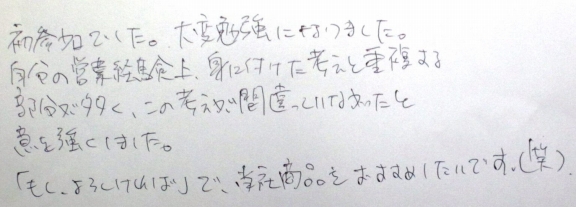 初参加でした。大変勉強になりました。
自分の営業経験上、身に付けた考えと重複する
部分が多く、この考えが間違っていなかったと
意を強くしました。
「もし、よろしければ」で、当社商品をおすすめしたいです。(笑)